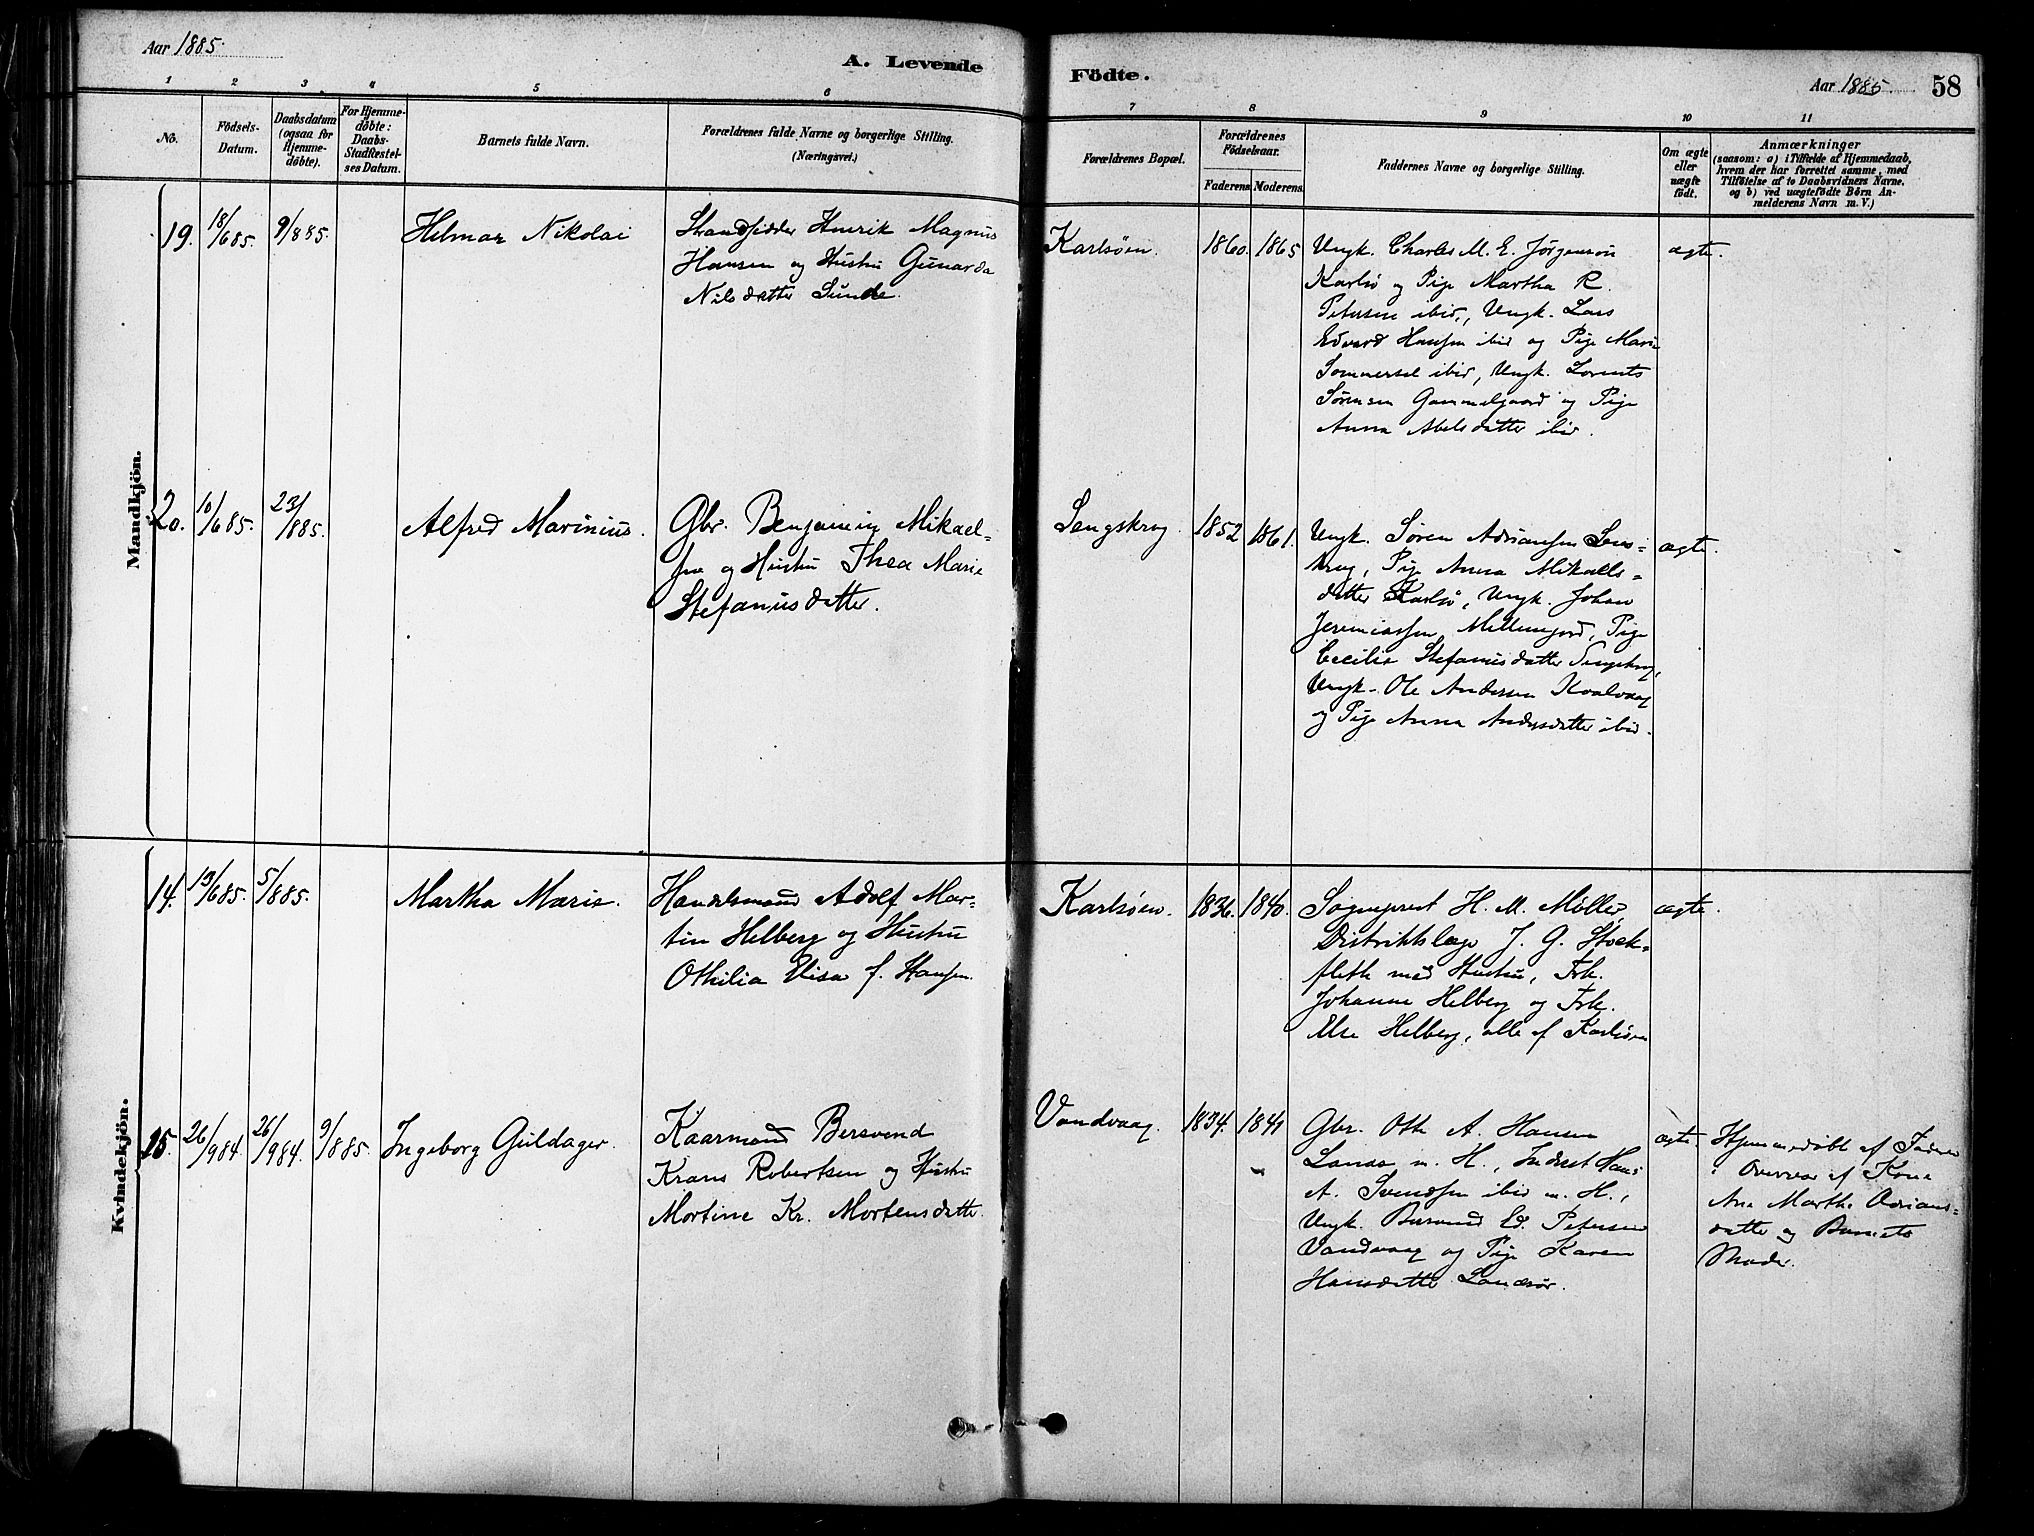 Aar 1885.
A. Levende
Födte.
Aar 1885.
58
1 2 3 4 5 6
7 8 9 10 11
No.
Födsels-
Datum.
Daabsdatum
(ogsaa for
Hjemme-
döbte).
For Hjemme-
döbte:
Daabs-
Stadfæstel-
ses Datum.
Barnets fulde Navn.
Forældrenes fulde Navne og borgerlige Stilling.
(Næringsvei.)
Forældrenes Bopæl.
Forældrenes
Födselsaar.
Faderens. Moderens.
Faddernes Navne og borgerlige Stilling.
Om ægte
eller
uægte
födt.
Anmærkninger
(saasom: a) i Tilfælde af Hjemmedaab,
hvem der har forrettet samme, med
Tilföielse af to Daabsvidners Navne,
og b) ved uægtefödte Börn An-
melderens Navn m. V.)
Mandkjön.
19. 18/685. 9/885. Helmar Nikolai
Strandsidder Henrik Magnus
Hansen og Hustru Gunarda
Nilsdatter Sunde.
Karlsøen. 1860. 1865
Ungk. Charles M. E. Jørgensen
Karlsø og Pige Martha R.
Petersen ibid., Ungk. Lars
Edvard Hansen ibid og Pige Marie
Sommersel ibid, Ungk. Lorents
Sørensen Gammelgaard og Pige
Anna Abelsdatter ibid.
ægte.
20. 10/685. 23/885. Alfred Marinius.
Gbr. Benjamin Mikael-
sen og Hustru Thea Marie
Stefanusdatter.
Lengskrog. 1852 1861.
Ungk. Søren Adriansen Lens-
krog, Pige Anna Mikaels-
datter Karlsø, Ungk. Johan
Jeremiassen Mellemjord, Pige
Cecilie Stefanusdatter
Ungk. Ole Andersen Kvalvaag
og Pige Anna Andersdatter ibid.
ægte.
Kvindekjön.
14. 13/685. 5/885. Martha Marie.
Handelsmand Adolf Mar-
tin Helberg og Hustru
Othilia Elisa f. Hansen.
Karlsøen. 1836. 1840.
Sogneprest H. M. Møller,
Distriktslæge J. G. Stock-
fleth med Hustru, Frk.
Johanne Helberg og Frk.
Else Helberg, alle af Karlsøen
ægte.
15. 26/984. 26/984. 9/885. Ingeborg Guldager.
Kaarmand Bersvend
Krans Robertsen og Hustru
Mortine Kr. Mortensdatter.
Vandvaag. 1834. 1841
Gbr. Otto A. Hansen
m. H., Inderst Hans
A. Svendsen ibid m. H.,
Ungk. Bersvend Ed. Petersen
Vandvaag og Pige Karen
Hansdatter Landsør.
ægte.
Hjemmedøbt af Faderen
i Overvær af Kone
Ane Martha Adrians-
datter og Barnets
Moder.